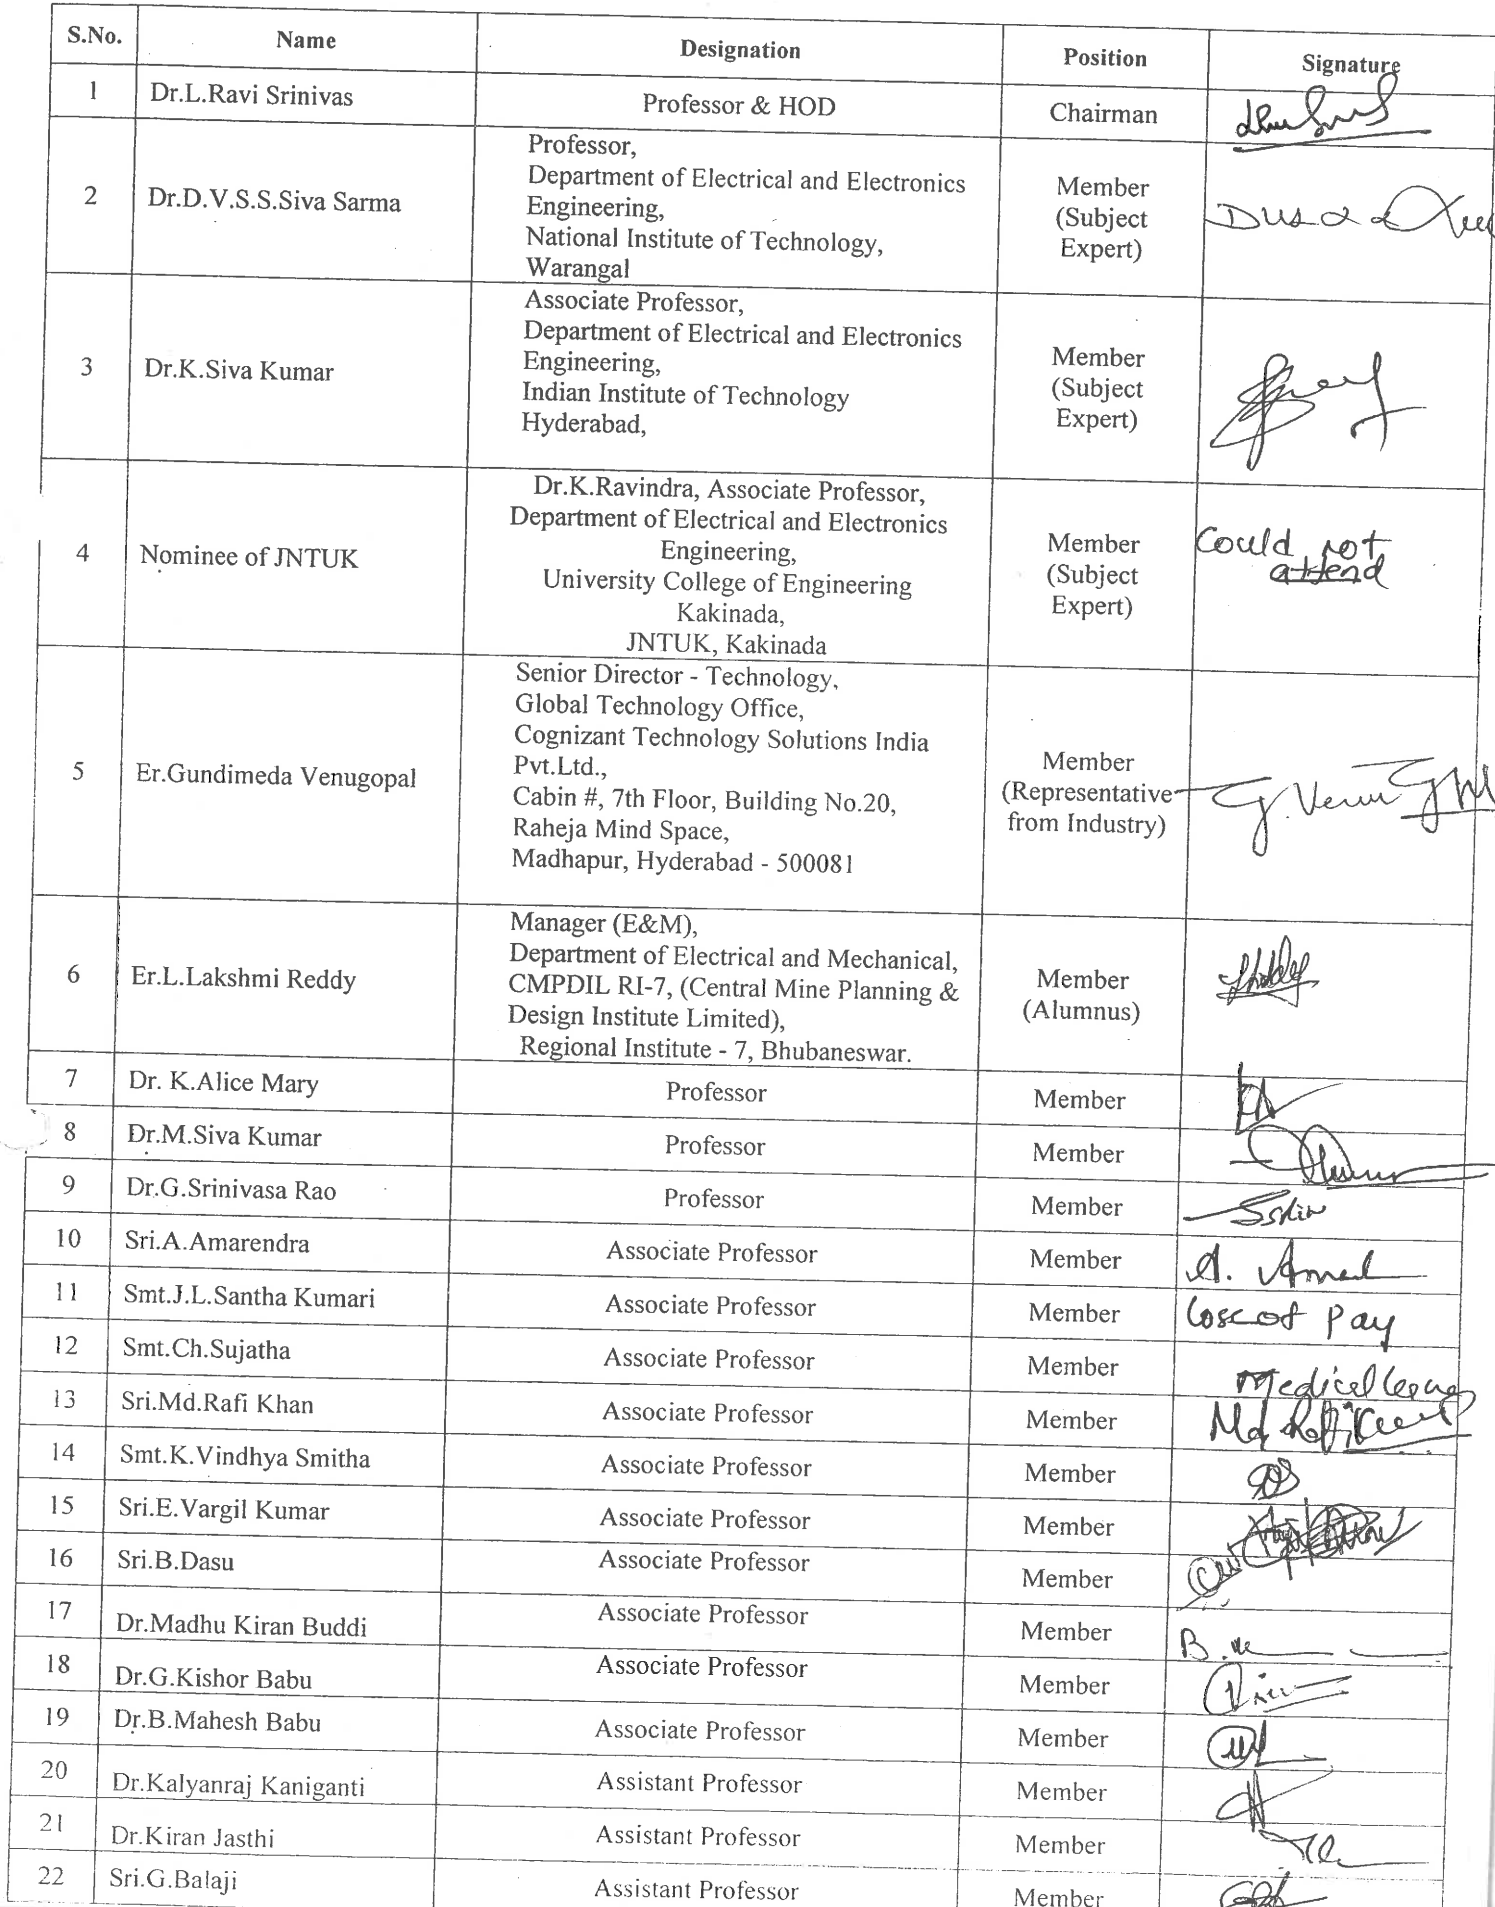 S.No. Name Designation Position Signature
1 Dr.L.Ravi Srinivas Professor & HOD Chairman
2 Dr.D.V.S.S.Siva Sarma Professor,
Department of Electrical and Electronics
Engineering,
National Institute of Technology,
Warangal
Member
(Subject
Expert)
3 Dr.K.Siva Kumar Associate Professor,
Department of Electrical and Electronics
Engineering,
Indian Institute of Technology
Hyderabad,
Member
(Subject
Expert)
4 Nominee of JNTUK Dr.K.Ravindra, Associate Professor,
Department of Electrical and Electronics
Engineering,
University College of Engineering
Kakinada,
JNTUK, Kakinada
Member
(Subject
Expert)
Could not
attend
5 Er.Gundimeda Venugopal Senior Director - Technology,
Global Technology Office,
Cognizant Technology Solutions India
Pvt.Ltd.,
Cabin #, 7th Floor, Building No.20,
Raheja Mind Space,
Madhapur, Hyderabad - 500081
Member
(Representative
from Industry)
6 Er.L.Lakshmi Reddy Manager (E&M),
Department of Electrical and Mechanical,
CMPDIL RI-7, (Central Mine Planning &
Design Institute Limited),
Regional Institute - 7, Bhubaneswar.
Member
(Alumnus)
7 Dr. K.Alice Mary Professor Member
8 Dr.M.Siva Kumar Professor Member
9 Dr.G.Srinivasa Rao Professor Member
10 Sri.A.Amarendra Associate Professor Member
11 Smt.J.L.Santha Kumari Associate Professor Member Loss of Pay
12 Smt.Ch.Sujatha Associate Professor Member Medical Leave
13 Sri.Md.Rafi Khan Associate Professor Member
14 Smt.K.Vindhya Smitha Associate Professor Member
15 Sri.E.Vargil Kumar Associate Professor Member
16 Sri.B.Dasu Associate Professor Member
17 Dr.Madhu Kiran Buddi Associate Professor Member
18 Dr.G.Kishor Babu Associate Professor Member
19 Dr.B.Mahesh Babu Associate Professor Member
20 Dr.Kalyanraj Kaniganti Assistant Professor Member
21 Dr.Kiran Jasthi Assistant Professor Member
22 Sri.G.Balaji Assistant Professor Member